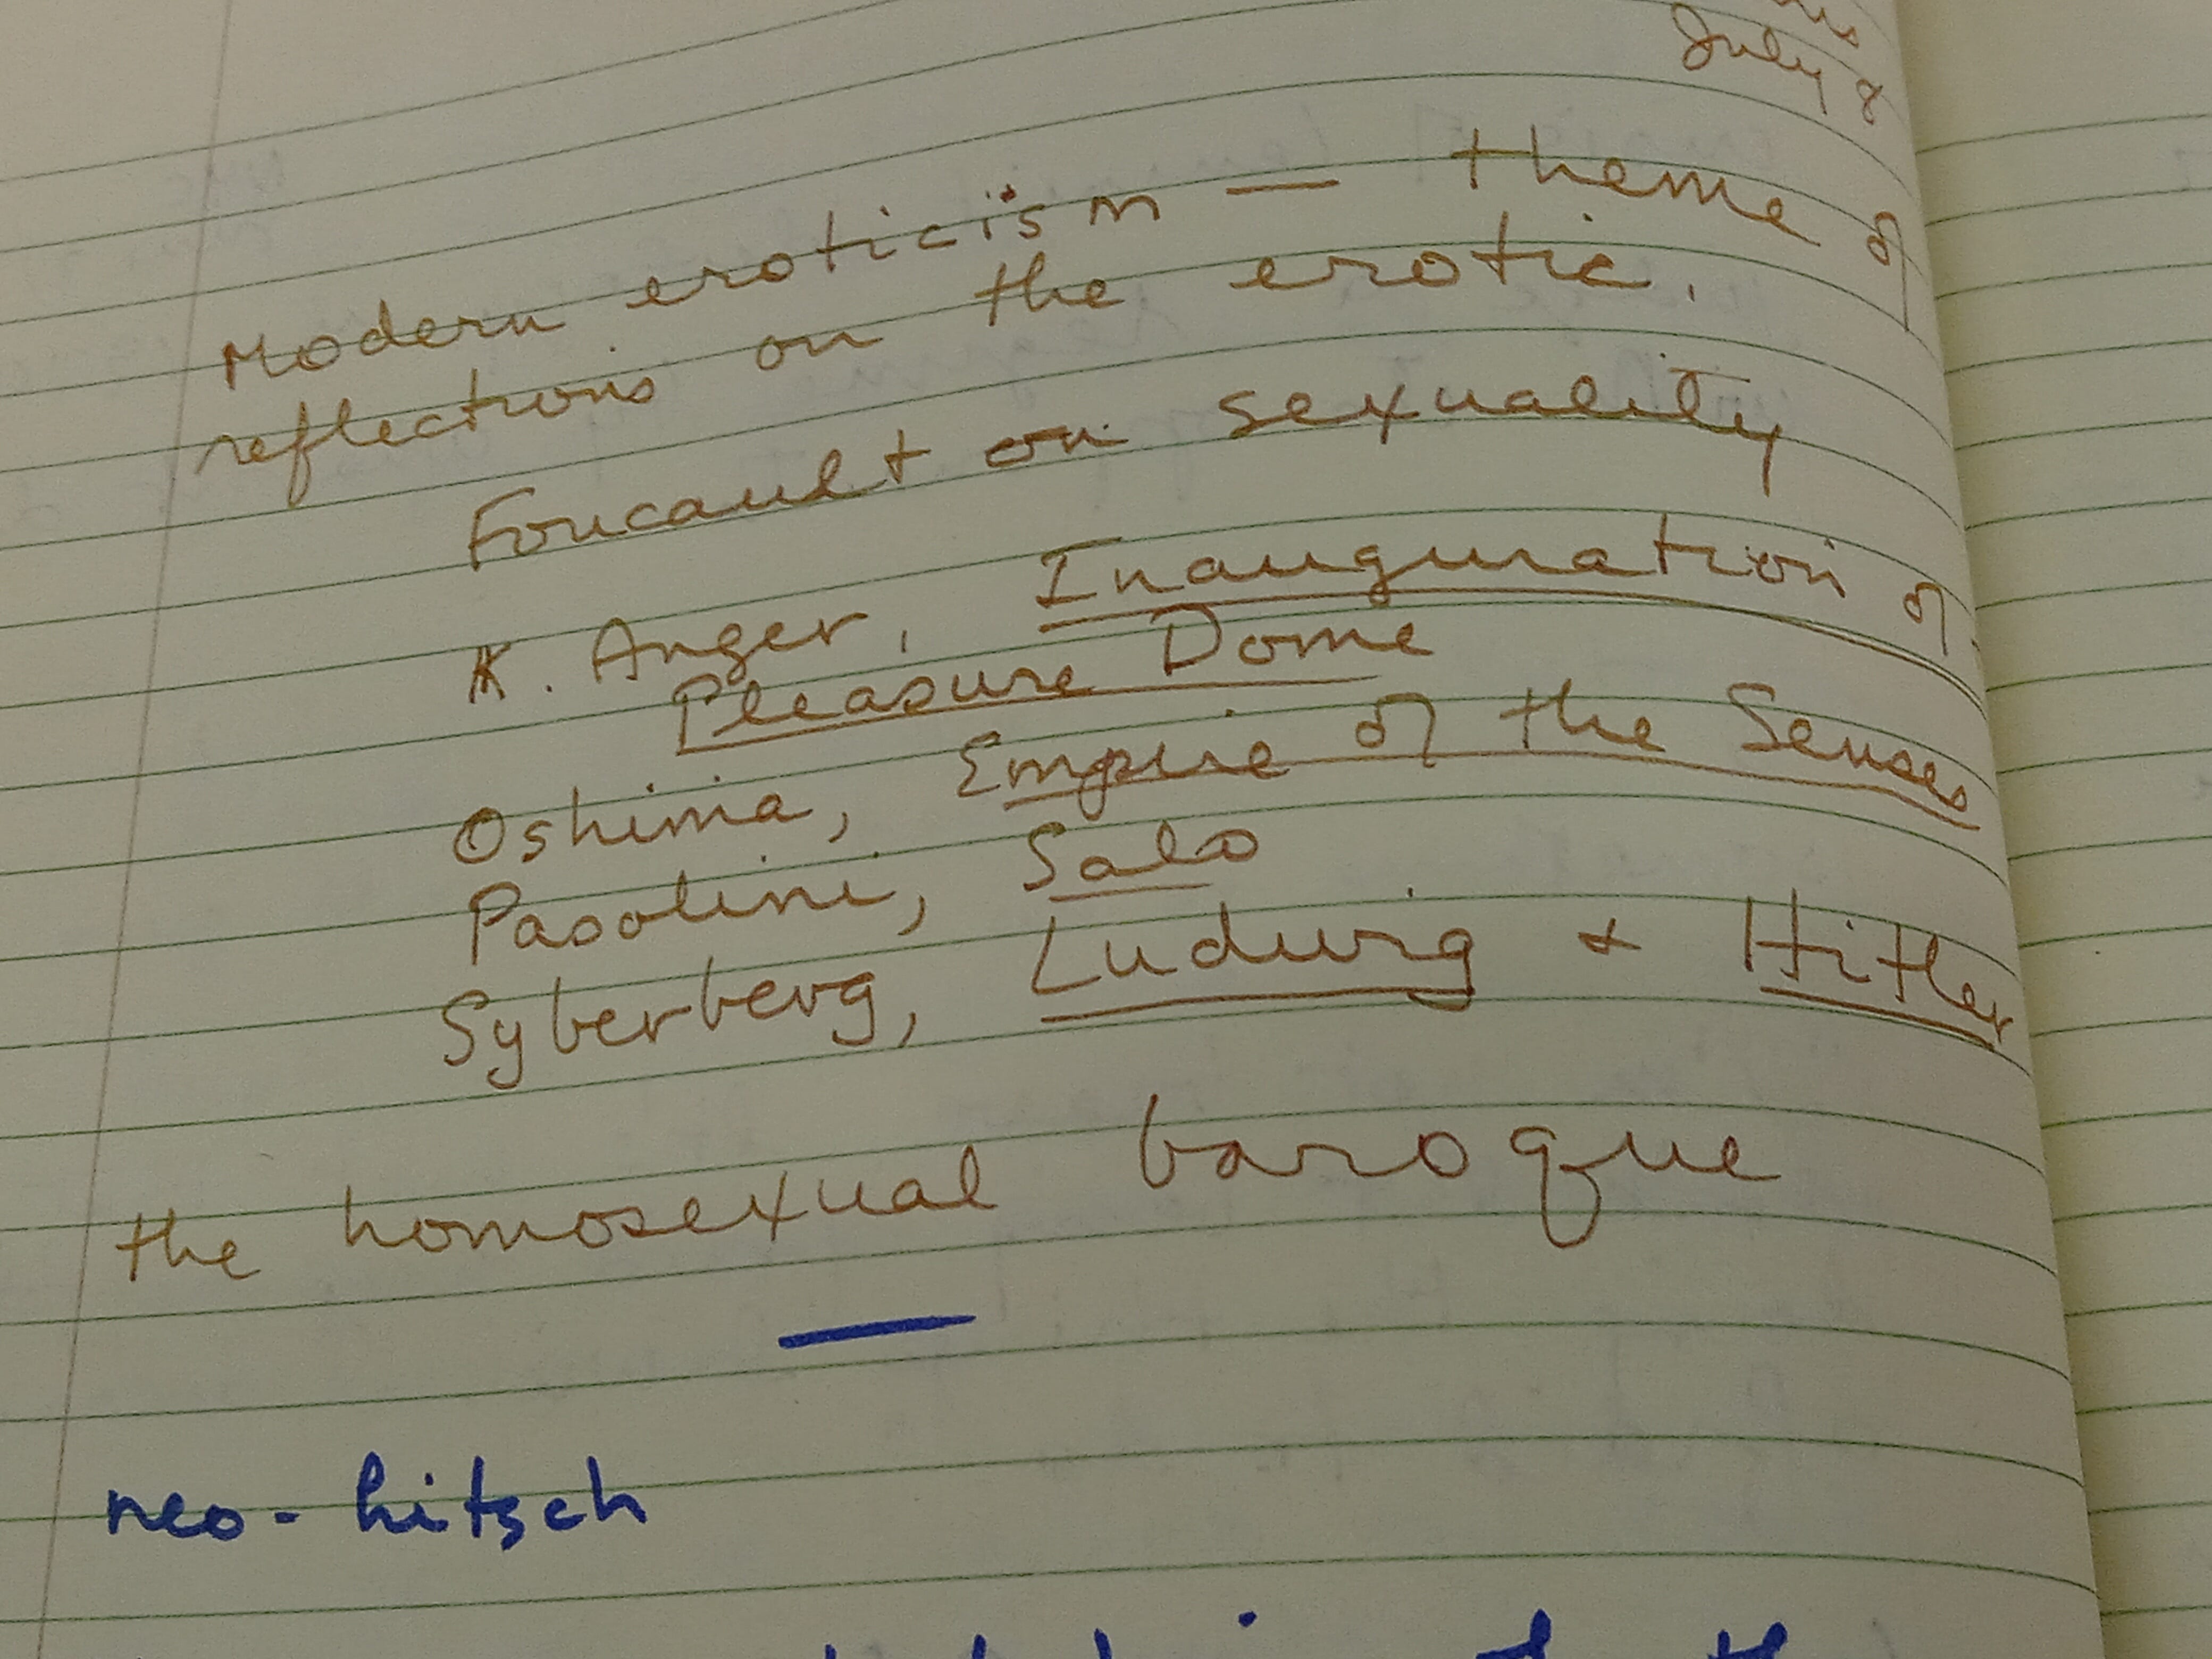 July 8
Modern eroticism — theme of
reflections on the erotic.
Foucault on sexuality
K. Anger, Inauguration of
Pleasure Dome
Oshima, Empire of the Senses
Pasolini, Salo
Syberberg, Ludwig + Hitler
the homosexual baroque
neo-kitsch